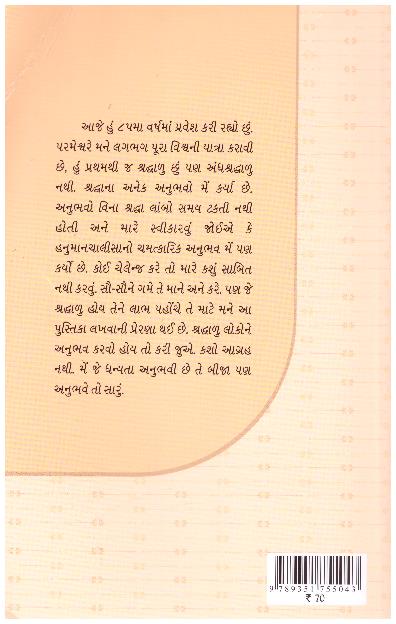 આજે હું ૮૫મા વર્ષમાં પ્રવેશ કરી રહ્યો છું.
પરમેશ્વરે મને લગભગ પૂરા વિશ્વની યાત્રા કરાવી
છે, હું પ્રથમથી જ શ્રદ્ધાળુ છું પણ અંધશ્રદ્ધાળુ
નથી. શ્રદ્ધાના અનેક અનુભવો મેં કર્યા છે.
અનુભવો વિના શ્રદ્ધા લાંબો સમય ટકતી નથી
હોતી અને મારે સ્વીકારવું જોઈએ કે
હનુમાનચાલીસાનો ચમત્કારિક અનુભવ મેં પણ
કર્યો છે. કોઈ ચેલેન્જ કરે તો મારે કશું સાબિત
નથી કરવું. સૌ-સૌને ગમે તે માને અને કરે. પણ જે
શ્રદ્ધાળુ હોય તેને લાભ પહોંચે તે માટે મને આ
પુસ્તિકા લખવાની પ્રેરણા થઈ છે. શ્રદ્ધાળુ લોકોને
અનુભવ કરવો હોય તો કરી જુએ.. કશો આગ્રહ
નથી. મેં જે ધન્યતા અનુભવી છે તે બીજા પણ
અનુભવે તો સારું.
9 789351 755043
₹ 70